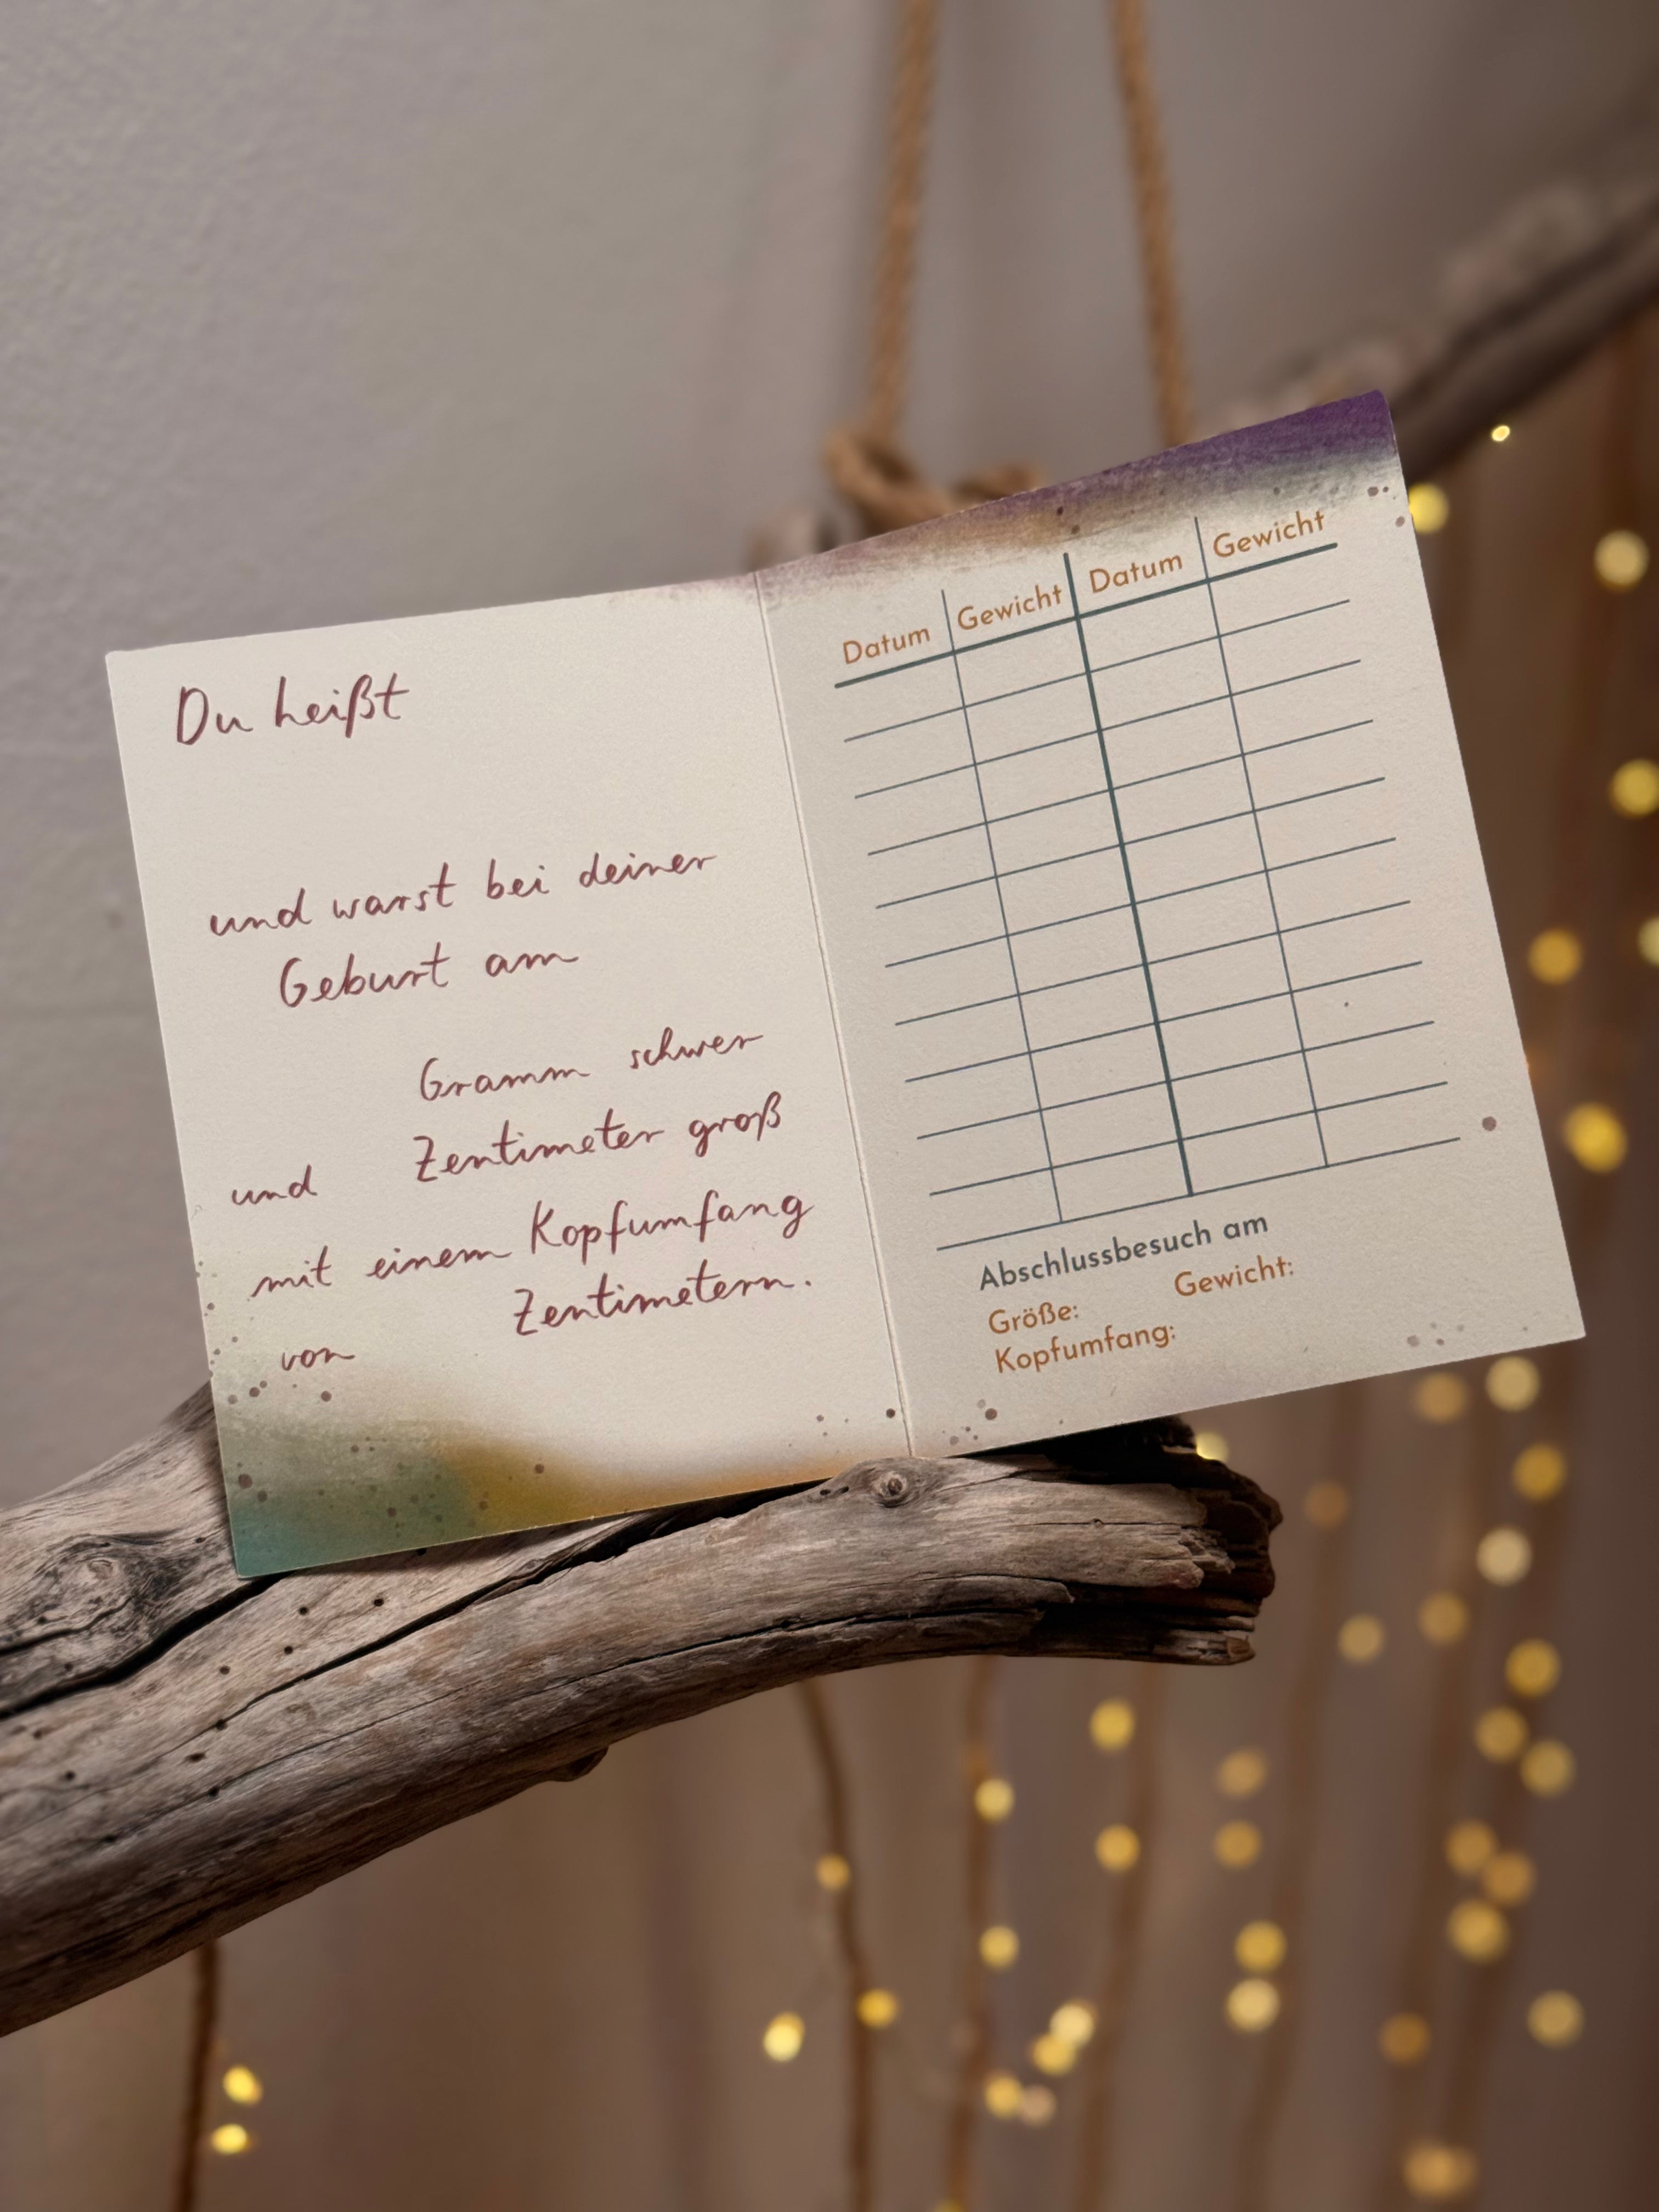 Du heißt
und warst bei deiner
Geburt am
Gramm schwer
und Zentimeter groß
mit einem Kopfumfang
von Zentimetern.
Datum Gewicht Datum Gewicht
Abschlussbesuch am
Größe: Gewicht:
Kopfumfang: